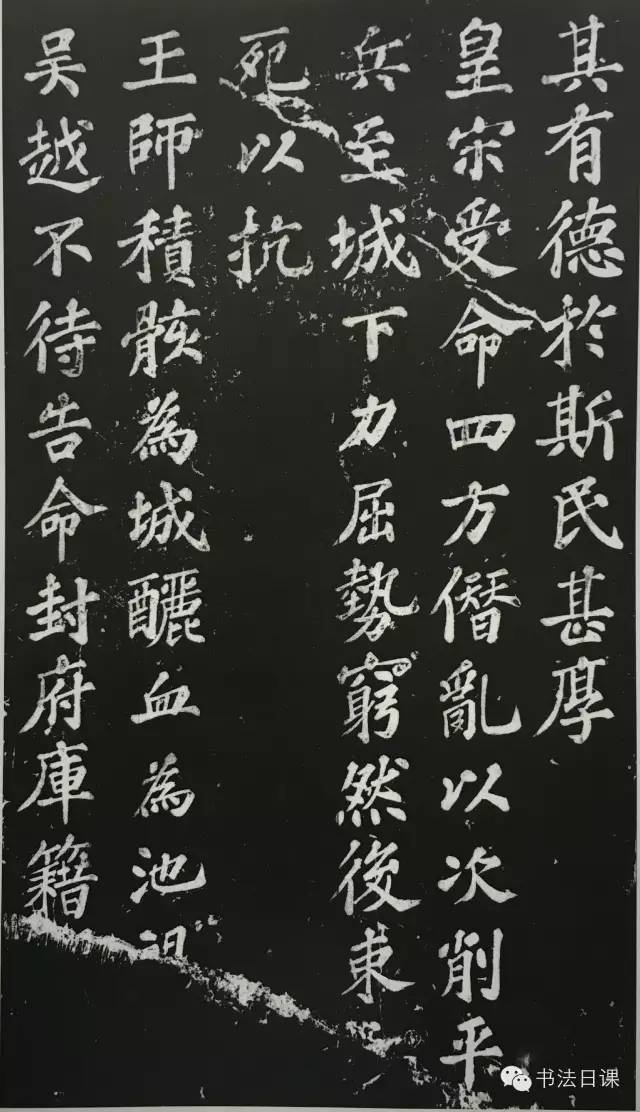 其有德於斯民甚厚
皇宋受命四方僭亂以次削平
兵至城下力屈勢窮然後束
死以抗
王師積骸為城釃血為池
吳越不待告命封府庫籍
书法日课